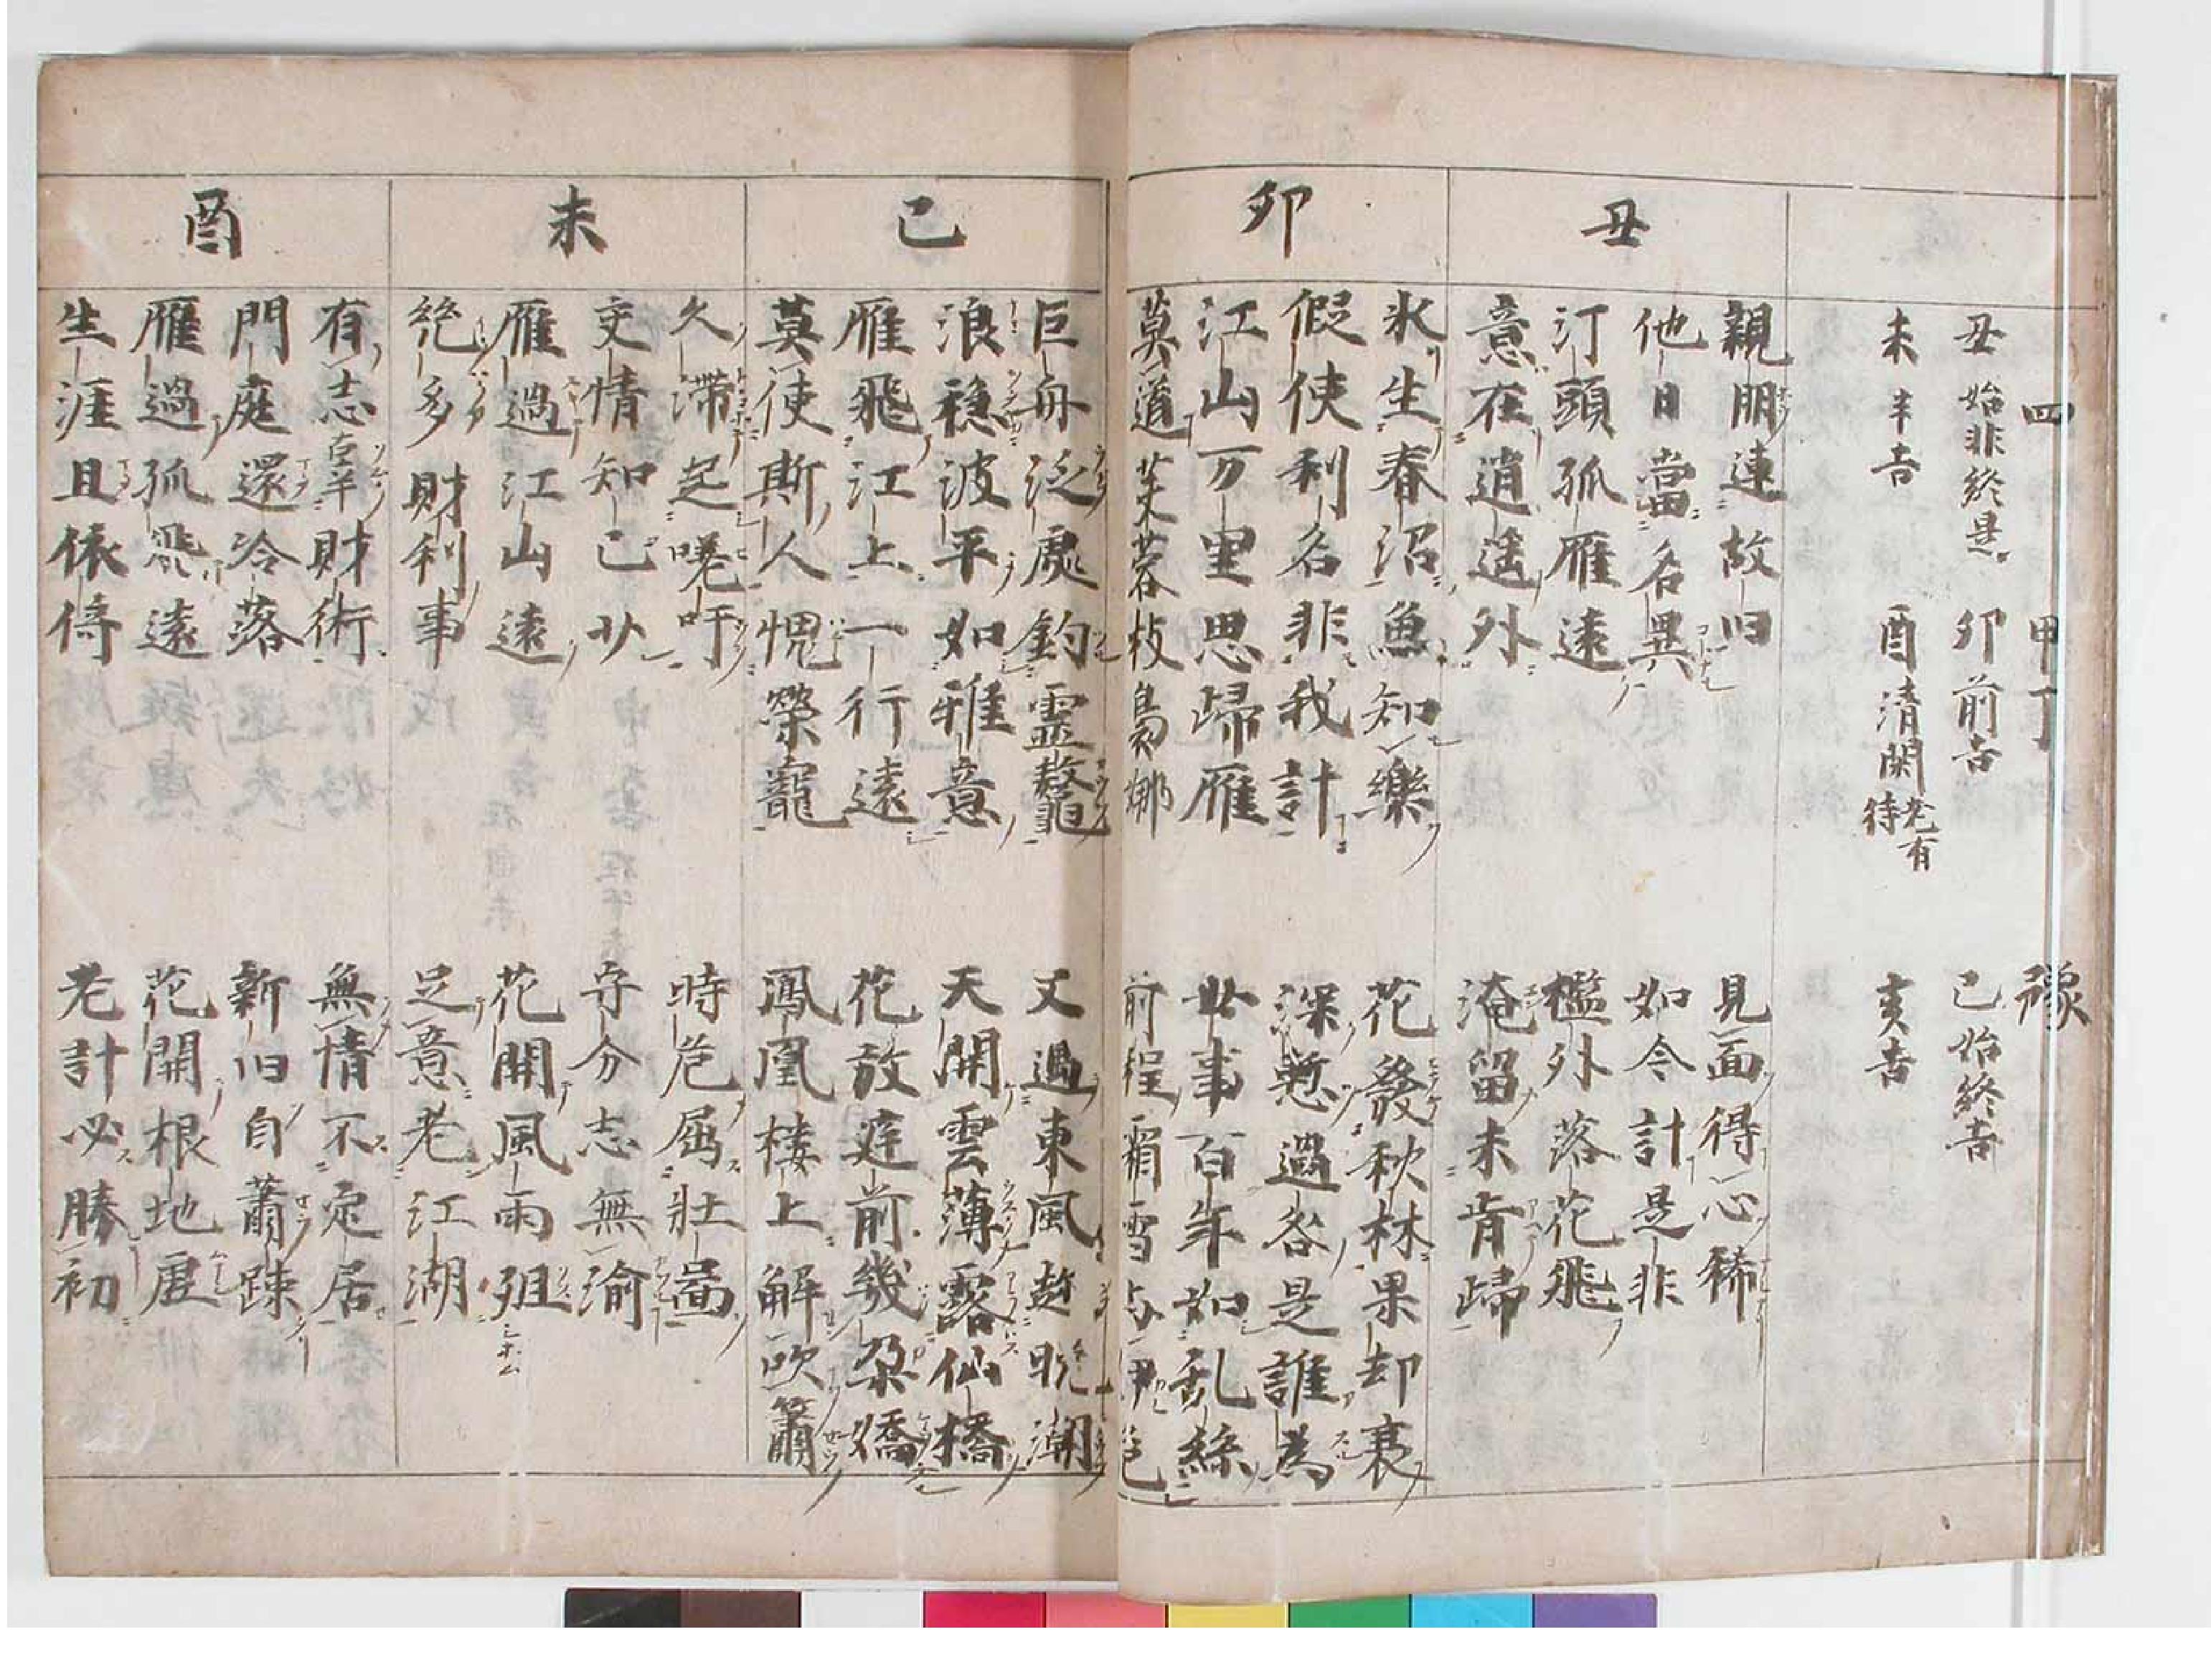 四 甲丁 豫
丑 始非終是 卯 前吉 巳 始終吉
未 半吉 酉 清閑 老有待 亥 吉
丑
親朋連故旧 見面得心稀
他日當名異 如今計是非
汀頭孤雁遠 檻外落花飛
意在逍遥外 淹留未肯歸
卯
氷生春沼魚知樂 花發秋林果却衰
假使利名非我計 深慙過咎是誰為
江山万里思歸雁 世事百年如乱絲
莫道芙蓉枝裊娜 前程霜雪
巳
巨舟泛處釣靈鼇 又過東風趂晩潮
浪穏波平如雅意 天開雲薄露仙橋
雁飛江上一行遠 花放庭前幾朶嬌
莫使斯人愧榮寵 鳳凰楼上解吹簫
未
久滞起嗟吁 時危屈壯啚
交情知己少 守分志無渝
雁過江山遠 花開風雨徂
絶多財利事 足意老江湖
酉
有志辜財術 無情不定居
門庭還冷落 新旧自蕭踈
雁過孤飛遠 花開根地虚
生涯且依倚 老計必勝初